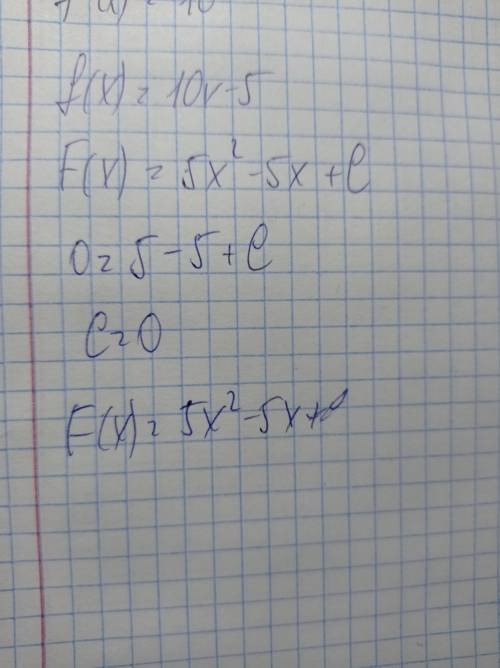 f(x) = 10x-5
F(x) = 5x² -5x + C
0 = 5 - 5 + C
C = 0
F(x) = 5x² -5x+